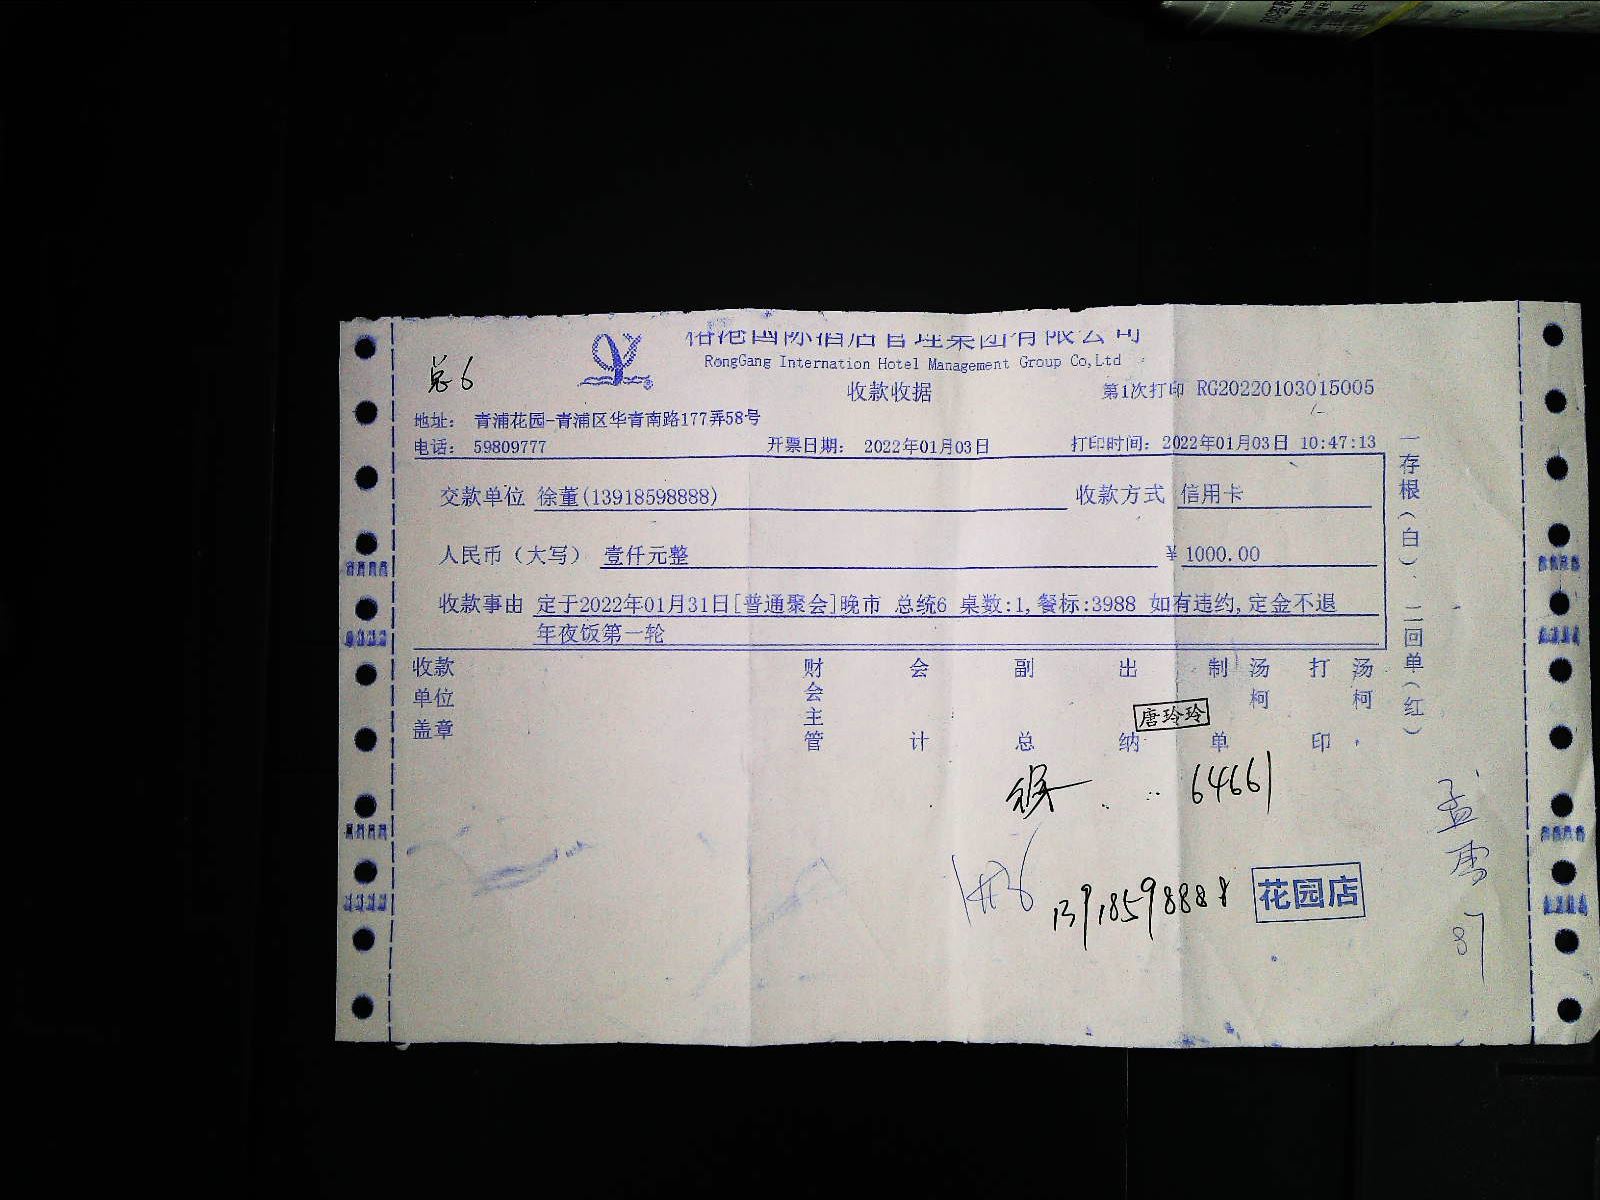 总6
国际酒店管理集团有限公司
RongGang Internation Hotel Management Group Co,Ltd
收款收据
第1次打印 RG20220103015005
地址： 青浦花园-青浦区华青南路177弄58号
电话： 59809777 开票日期： 2022年01月03日 打印时间：2022年01月03日 10:47:13
交款单位 徐董(13918598888) 收款方式 信用卡
人民币（大写） 壹仟元整 ¥ 1000.00
收款事由 定于2022年01月31日[普通聚会]晚市 总统6 桌数:1,餐标:3988 如有违约,定金不退
年夜饭第一轮
收款单位盖章 财会主管 会计 副总 出纳 制单 汤柯 打印 汤柯
唐玲玲
64661
13918598888
花园店
一存根（白）、二回单（红）
孟雪
87